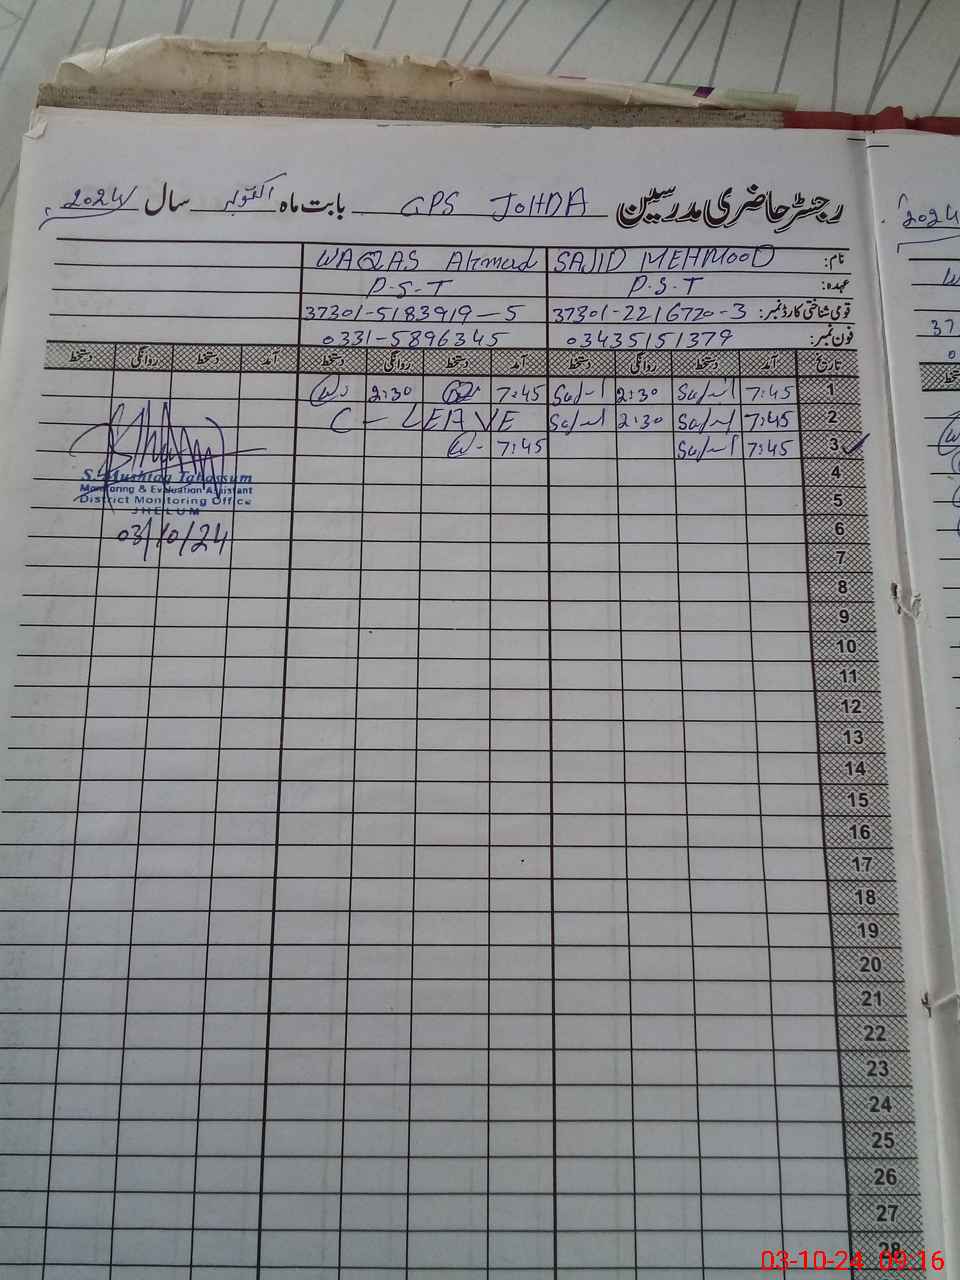 رجسٹر حاضری مدرسین GPS JOHDA بابت ماہ اکتوبر سال 2024
نام: SAJID MEHMOOD WAQAS Ahmed
عہدہ: P.S.T P.S.T
قومی شناختی کارڈ نمبر: 37301-2216720-3 37301-5183919-5
فون نمبر: 03435151379 0331-5896345
تاریخ آمد دستخط روانگی دستخط آمد دستخط روانگی دستخط آمد دستخط روانگی دستخط
1 7:45 2:30 7:45 2:30
2 7:45 2:30 C-LEAVE
3 7:45 7:45
4
S. Mushtaq Tabassum
Monitoring & Evaluation Assistant
5
District Monitoring Office
JHELUM
6
03/10/24
7
8
9
10
11
12
13
14
15
16
17
18
19
20
21
22
23
24
25
26
27
28
2024
37
03-10-24 09:16